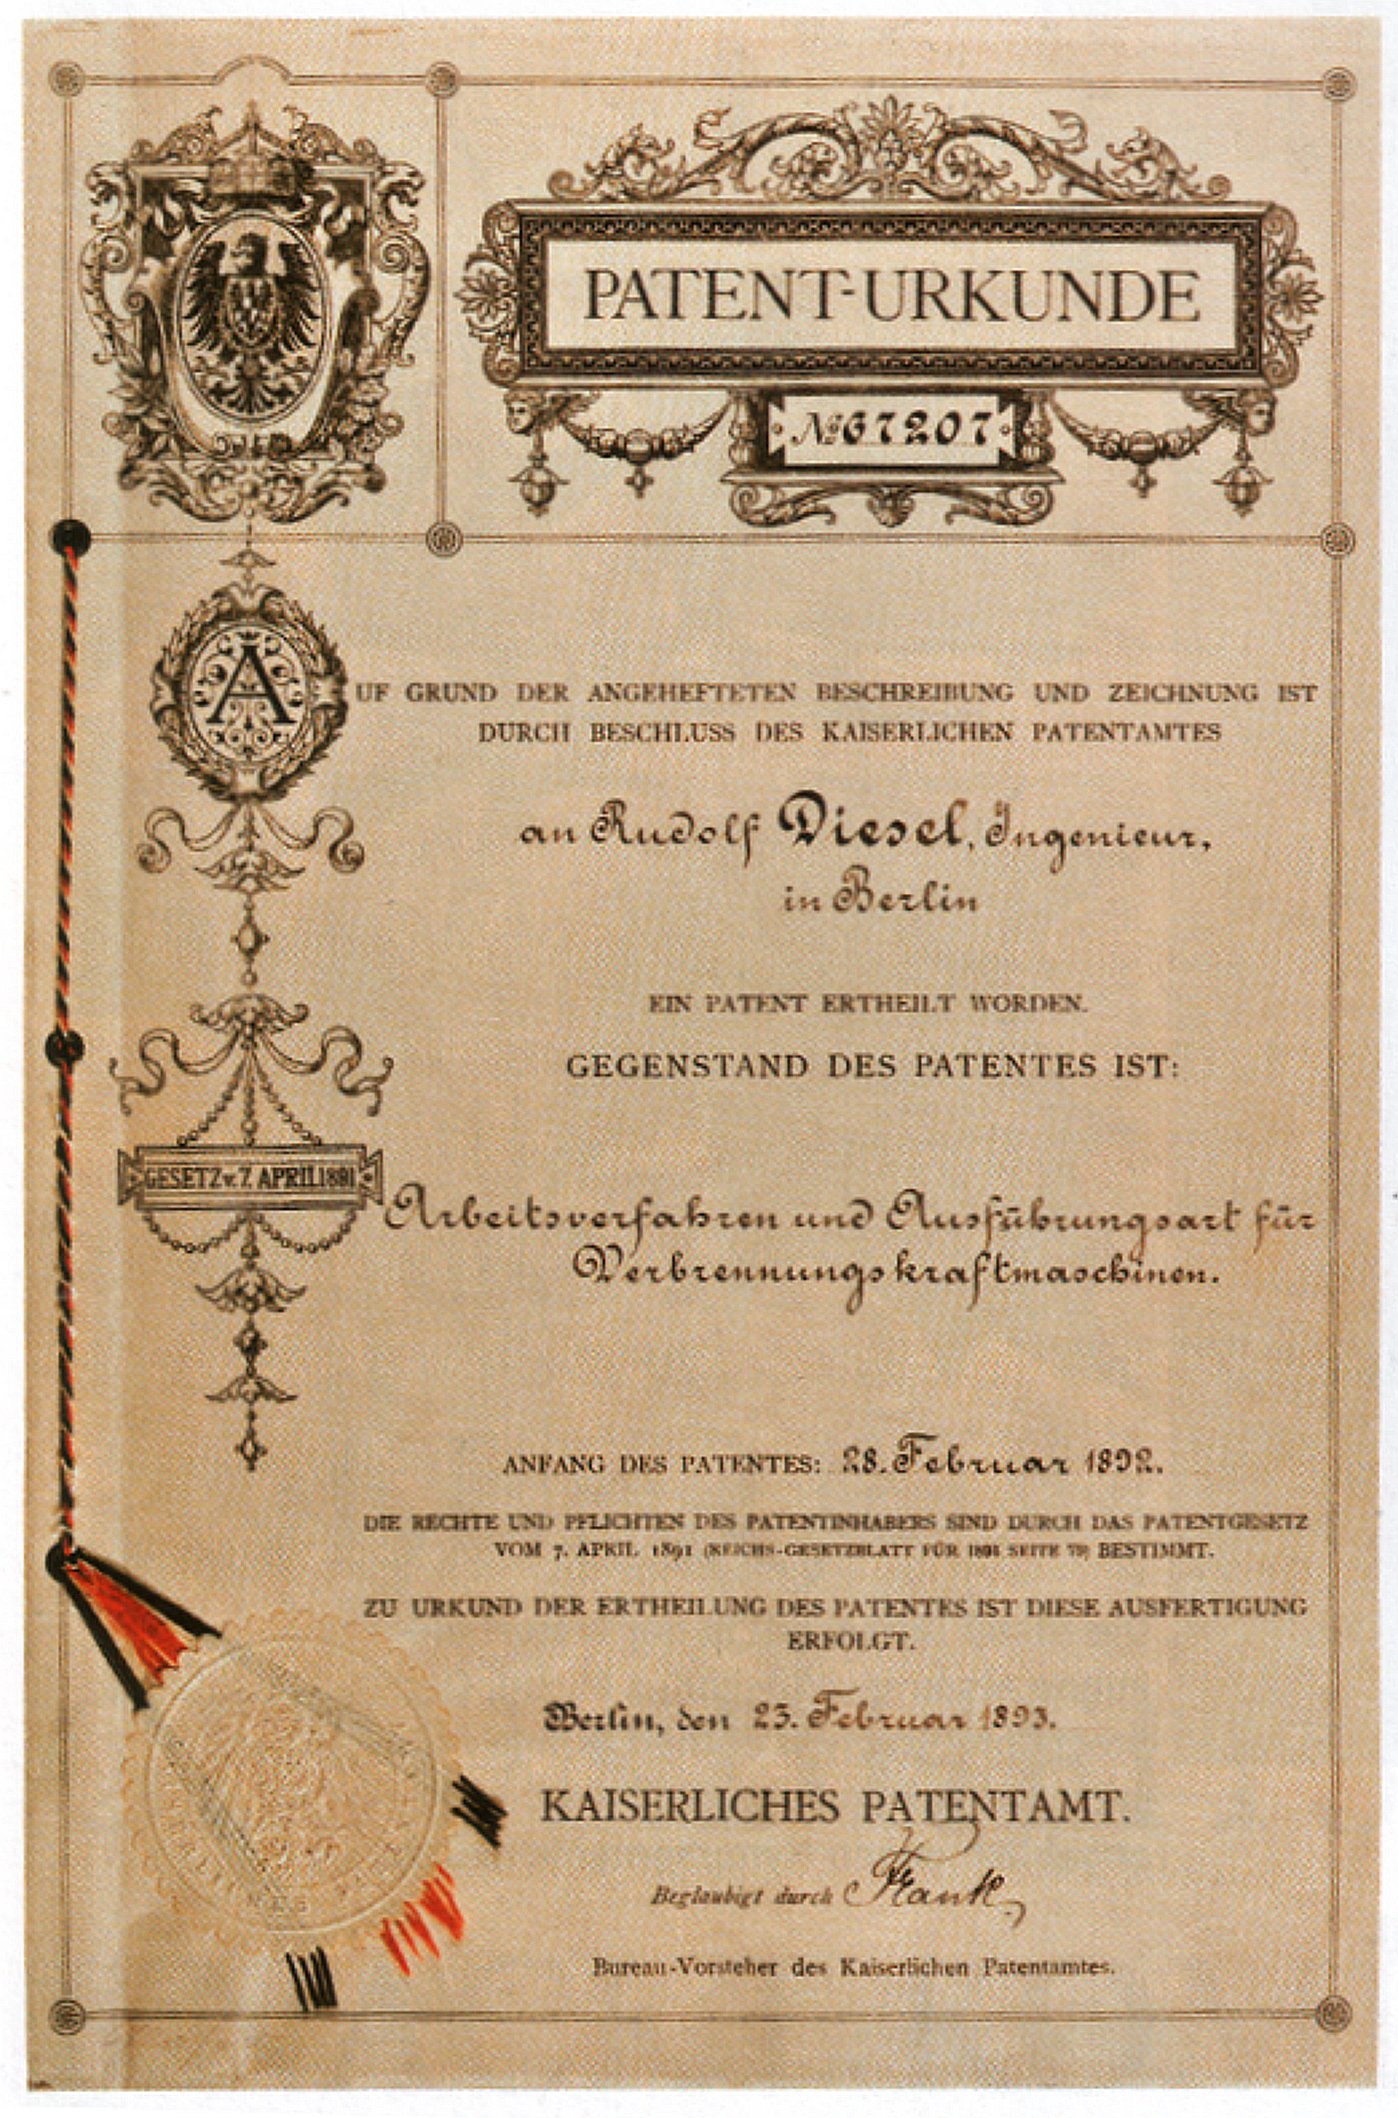 PATENT-URKUNDE
№ 67207
AUF GRUND DER ANGEHEFTETEN BESCHREIBUNG UND ZEICHNUNG IST
DURCH BESCHLUSS DES KAISERLICHEN PATENTAMTES
an Rudolf Diesel, Ingenieur,
in Berlin
EIN PATENT ERTHEILT WORDEN.
GEGENSTAND DES PATENTES IST:
GESETZ v. 7. APRIL 1891
Arbeitsverfahren und Ausführungsart für
Verbrennungskraftmaschinen.
ANFANG DES PATENTES: 28. Februar 1892.
DIE RECHTE UND PFLICHTEN DES PATENTINHABERS SIND DURCH DAS PATENTGESETZ
VOM 7. APRIL 1891 (REICHS-GESETZBLATT FÜR 1891 SEITE 79) BESTIMMT.
ZU URKUND DER ERTHEILUNG DES PATENTES IST DIESE AUSFERTIGUNG
ERFOLGT.
Berlin, den 23. Februar 1893.
KAISERLICHES PATENTAMT.
Beglaubigt durch
Bureau-Vorsteher des Kaiserlichen Patentamtes.